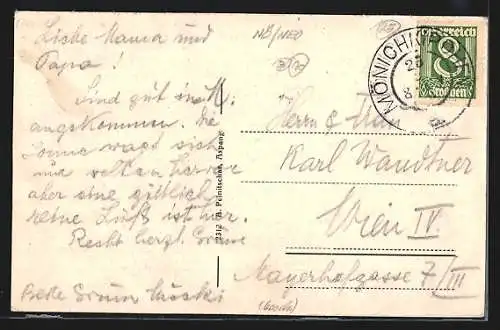 Liebe Mama und
Papa!
Sind gut in M.
angekommen. Die
Sonne wagt sich
nur selten hervor
aber eine göttlich
reine Luft ist hier.
Recht herzl. Grüße
Beste Grüße
NÖ/NEO
2312 Pelnitschar, Aspang
MÖNICHK
8
Österreich
8
Groschen
Herrn & Frau
Karl Wandtner
Wien IV.
Mayerhofgasse 7/III